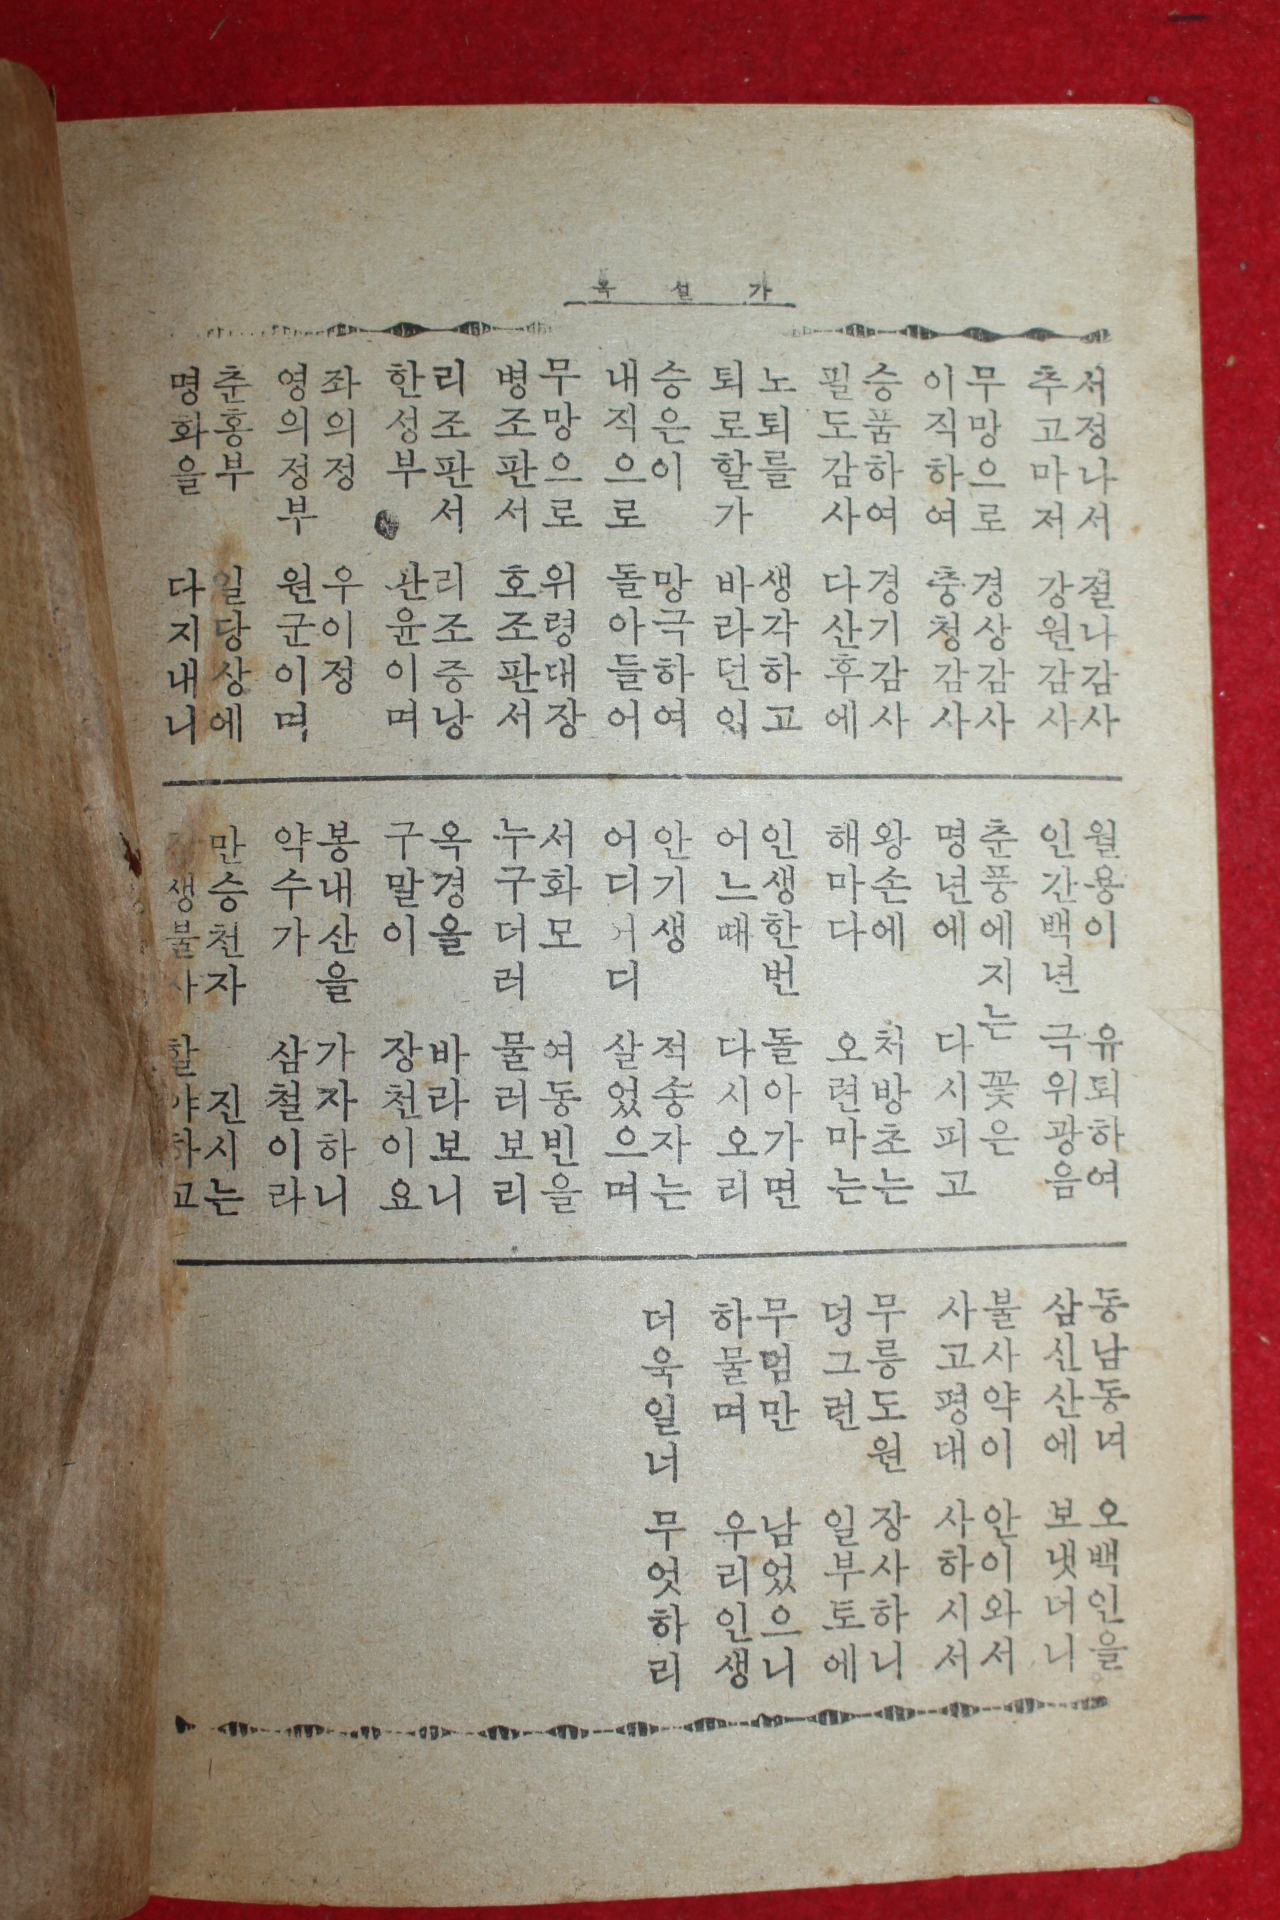 옥설가
서정나서 절나감사
추고마저 강원감사
무망으로 경상감사
이직하여 충청감사
승품하여 경기감사
필도감사 다산후에
노퇴를 생각하고
퇴로할가 바라던
승은이 망극하여
내직으로 돌아들어
무망으로 위령대장
병조판서 호조판서
리조판서 리조중낭
한성부 판윤이며
좌의정 우이정
영의정부 원군이며
춘홍부 일당상에
명화을 다지내니
월용이 유퇴하여
인간백년 극위광음
춘풍에지는 꽃은
명년에 다시피고
왕손에 처방초는
해마다 오련마는
인생한번 돌아가면
어느때 다시오리
안기생 적송자는
어디어디 살었으며
서화모 여동빈을
누구더러 물러보리
옥경을 바라보니
구말이 장천이요
봉내산을 가자하니
약수가 삼철이라
만승천자 진시는
생불사 할야하고
동남동녀 오백인을
삼신산에 보냇더니
불사약이 안이와서
사고평대 사하시서
무릉도원 장사하니
덩그런 일부토에
무덤만 남었으니
하물며 우리인생
더욱일너 무엇하리